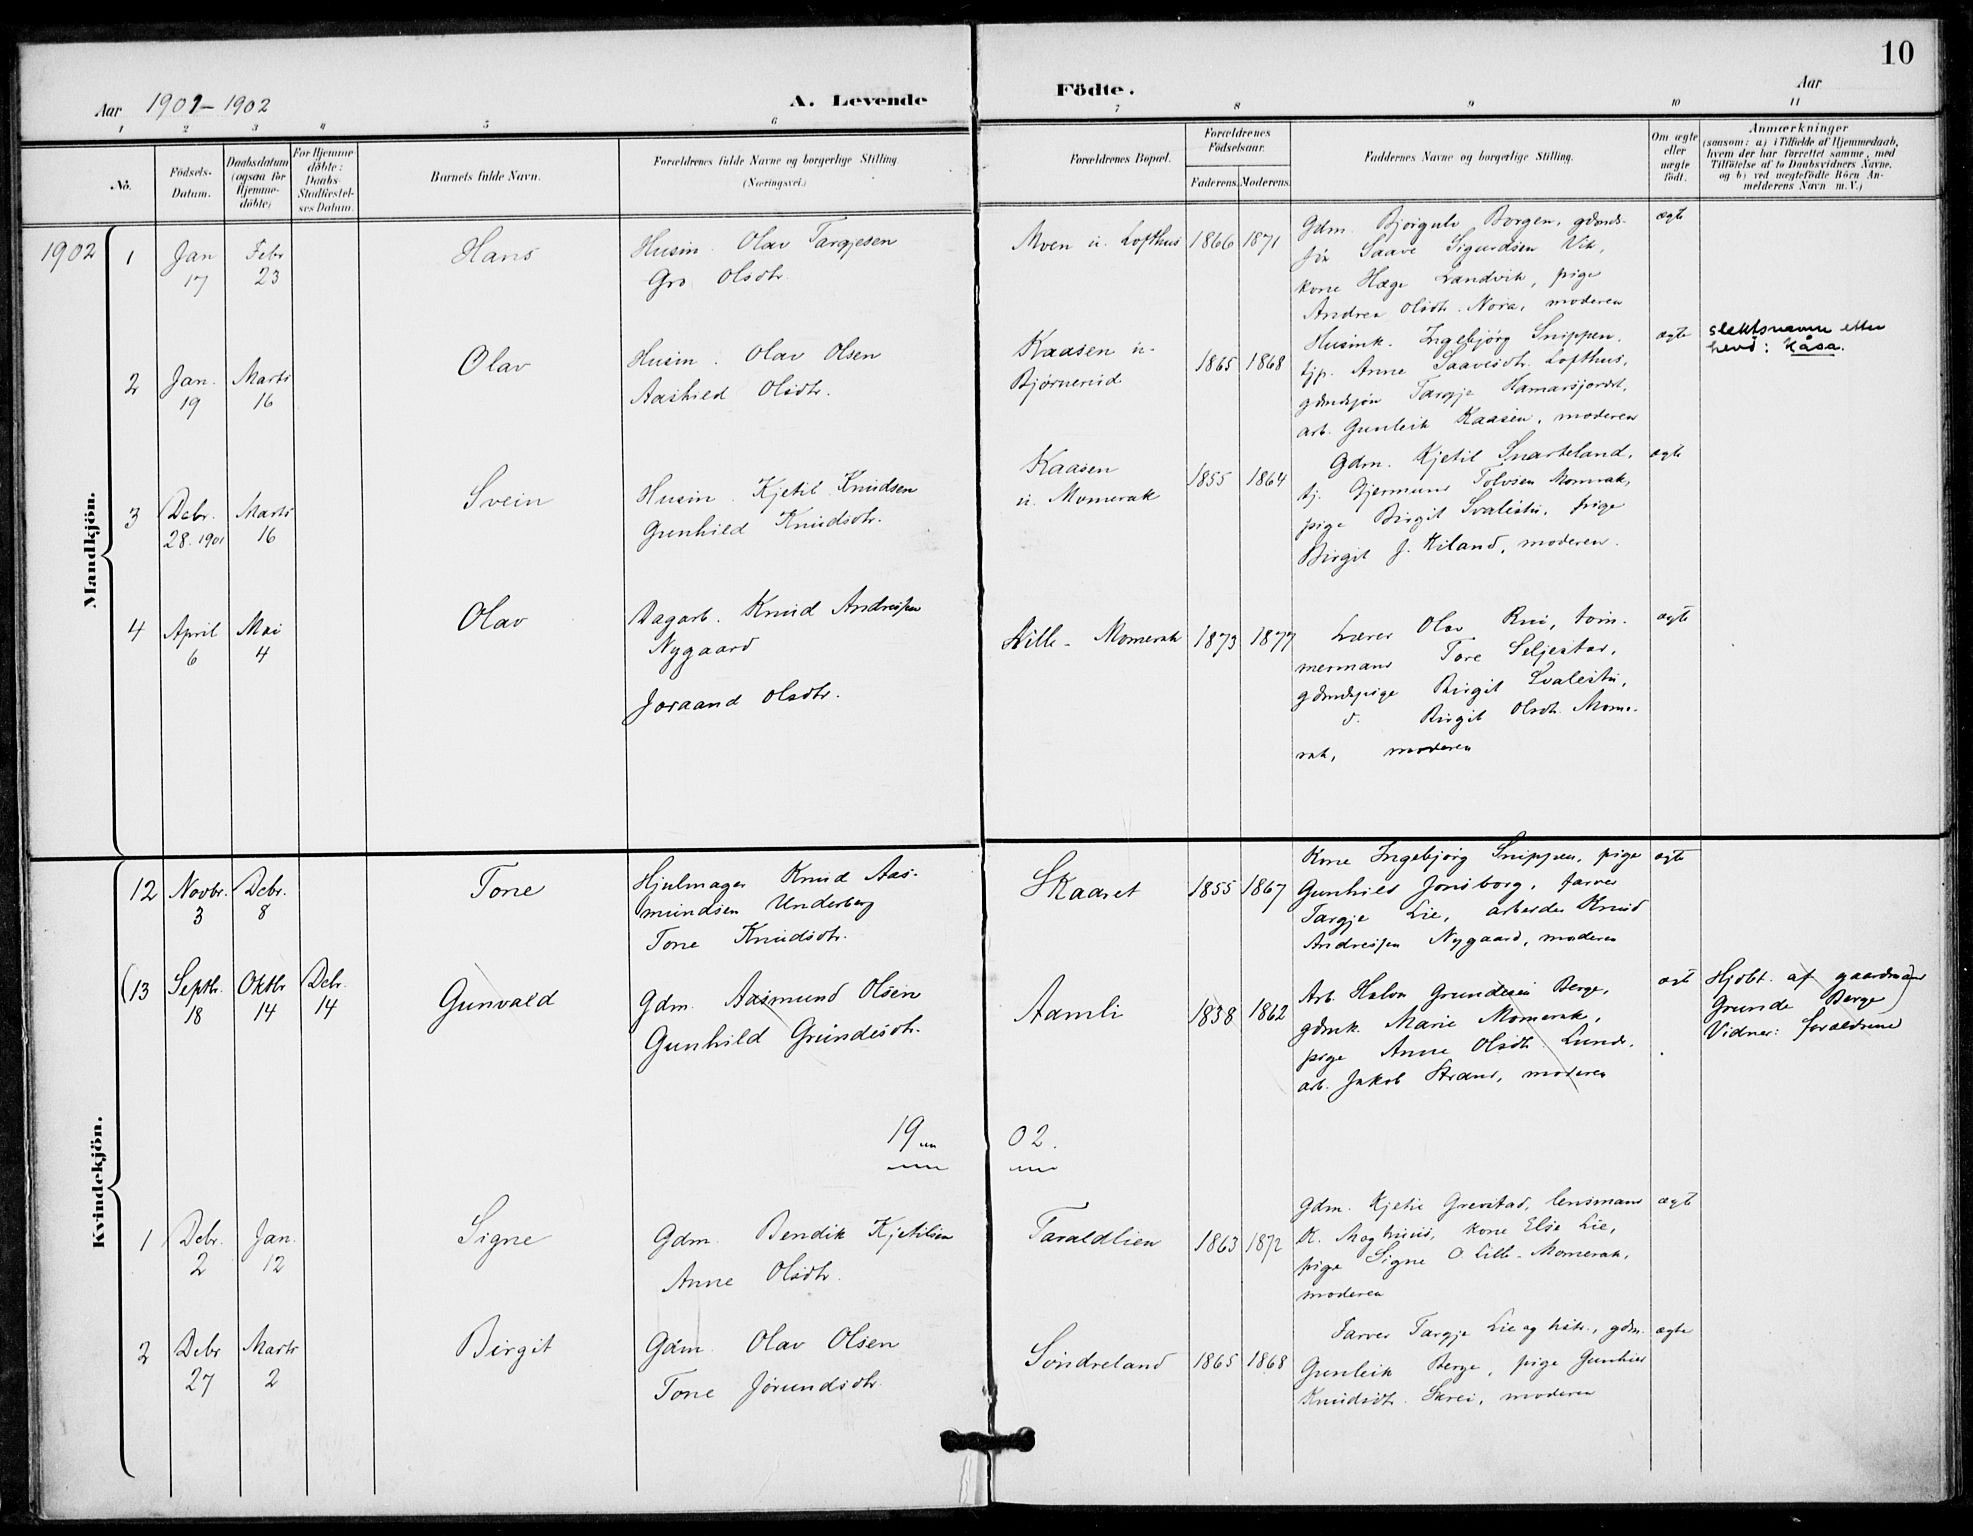 10
Aar 1901-1902 A. Levende Födte. Aar
1 2 3 4 5 6 7 8 9 10 11
No.
Födsels-Datum.
Daabsdatum (ogsaa for Hjemme-döbte)
For Hjemme-döbte: Daabs-Stadfæstel-ses Datum.
Barnets fulde Navn.
Forældrenes fulde Navne og borgerlige Stilling.
(Næringsvei.)
Forældrenes Bopæl.
Forældrenes Födselsaar.
Faderens. Moderens.
Faddernes Navne og borgerlige Stilling.
Om ægte eller uægte födt.
Anmærkninger
(saasom: a) i Tilfælde af Hjemmedaab,
hvem der har forrettet samme, med
Tilföielse af to Daabsvidners Navne,
og b) ved uægtefödte Börn An-
melderens Navn m. V.)
Mandkjön.
1902 1 Jan 17 Febr 23 Hans
Husm. Olav Targjesen
Gro Olsdtr.
Moen u. Lofthus 1866 1871
Gdm. Bjørgulv Borgen, gdmds-
søn Saave Sigurdsen Vik,
kone Hæge Landvik, pige
Andrea Olsdtr. Nora, moderen
ægte
2 Jan. 19 Marts 16 Olav
Husm. Olav Olsen
Aashild Olsdtr.
Kaasen u.
Bjørnerud
1865 1868
Husmk. Ingebjørg Snippen,
tjp. Anne Saavesdtr. Lofthus,
gdmdssøn Targje Hamarsjordet,
arb. Gunleik Kaasen, moderen
ægte
slektsnavne etter
hevd: Kåsa.
3 Debr. 28. 1901 Marts 16 Svein
Husm. Kjetil Knudsen
Gunhild Knudsdtr.
Kaasen
u. Momerak
1855 1864
Gdm. Kjetil Snarteland,
tj. Gjermund Tolvsen Momrak,
pige Birgit Svalestu, pige
Birgit J. Kiland, moderen.
ægte
4 April 6 Mai 4 Olav
Dagarb. Knud Andressen
Nygaard
Joraand Olsdtr.
Lille-Momerak 1873 1877
Lærer Olav Rui, töm-
mermand Tore Seljestad,
gdmdspige Birgit Svalestu,
d. Birgit Olsdtr. Mome-
rak, moderen
ægte
Kvindekjön.
12 Novbr. 3 Debr. 8 Tone
Hjulmager Knud Aas-
mundsen Underberg
Tone Knudsdtr.
Skaaret 1855 1867
Kone Ingebjørg Snippen, pige
Gunhild Jonsborg, farver
Targje Lie, arbeider Knud
Andressen Nygaard, moderen
ægte
(13 Septbr. 18 Oktbr 14 Debr. 14 Gunvald
Gdm. Aasmund Olsen
Gunhild Grundesdtr.
Aamli 1838 1862
Arb. Halvor Grundesen Berge,
gdmk. Marie Momerak,
pige Anne Olsdtr. Lunde,
arb. Jakob Strand, moderen
ægt
Hjdbt. af gaardmand
Grunde Berge)
Vidner: forældrene
1902.
1 Debr. 2 Jan. 12 Signe
Gdm. Bendik Kjetilsen
Anne Olsdtr.
Taraldlien 1863 1872
Gdm. Kjetil Grevstad, lensmand
K. Moghuus, kone Else Lie,
pige Signe O. Lille-Momerak,
moderen
ægte
2 Debr 27 Marts 2 Birgit
Gdm. Olav Olsen
Tone Jørundsdtr.
Søndreland 1865 1868
Farver Targje Lie og hstr., gdm.
Gunleik Berge, pige Gunhild
Knudsdtr. Skrei, moderen
ægte